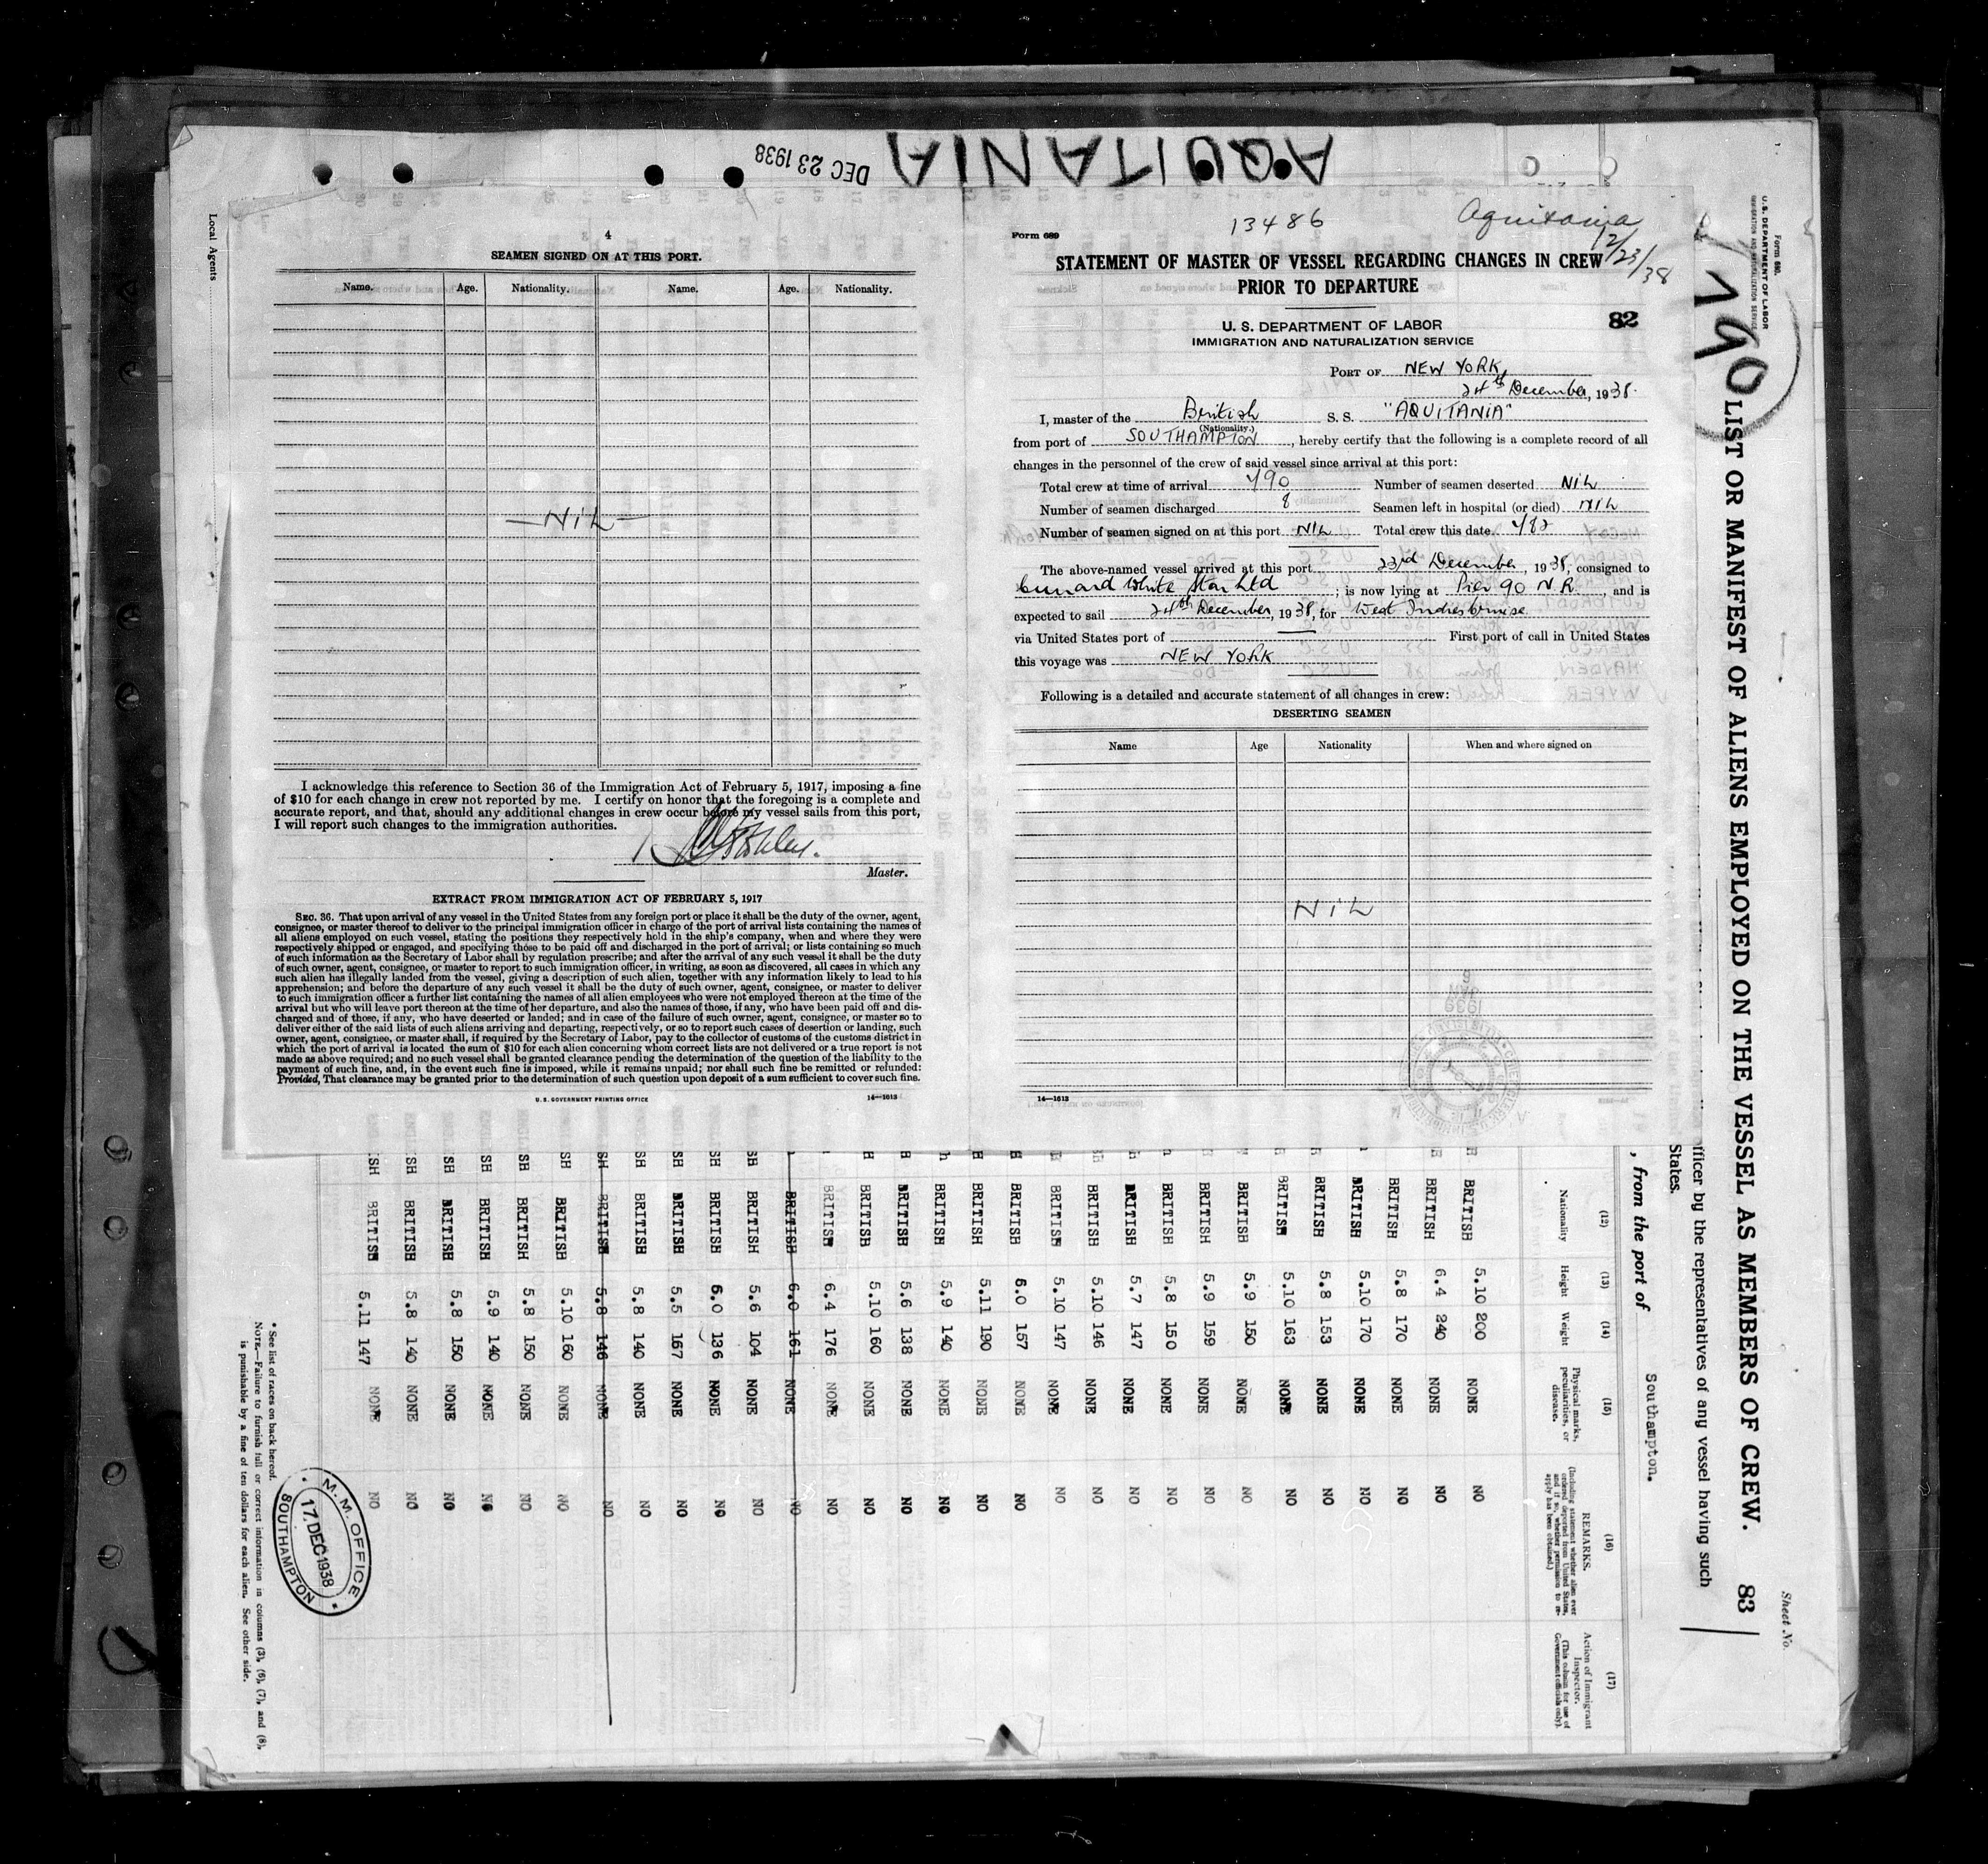 AQUITANIA
DEC 23 1938
Local Agents
4
SEAMEN SIGNED ON AT THIS PORT.
Name. Age. Nationality. Name. Age. Nationality.
—NIL—
I acknowledge this reference to Section 36 of the Immigration Act of February 5, 1917, imposing a fine
of $10 for each change in crew not reported by me. I certify on honor that the foregoing is a complete and
accurate report, and that, should any additional changes in crew occur before my vessel sails from this port,
I will report such changes to the immigration authorities.
Master.
EXTRACT FROM IMMIGRATION ACT OF FEBRUARY 5, 1917
SEC. 36. That upon arrival of any vessel in the United States from any foreign port or place it shall be the duty of the owner, agent,
consignee, or master thereof to deliver to the principal immigration officer in charge of the port of arrival lists containing the names of
all aliens employed on such vessel, stating the positions they respectively hold in the ship's company, when and where they were
respectively shipped or engaged, and specifying those to be paid off and discharged in the port of arrival; or lists containing so much
of such information as the Secretary of Labor shall by regulation prescribe; and after the arrival of any such vessel it shall be the duty
of such owner, agent, consignee, or master to report to such immigration officer, in writing, as soon as discovered, all cases in which any
such alien has illegally landed from the vessel, giving a description of such alien, together with any information likely to lead to his
apprehension; and before the departure of any such vessel it shall be the duty of such owner, agent, consignee, or master to deliver
to such immigration officer a further list containing the names of all alien employees who were not employed thereon at the time of the
arrival but who will leave port thereon at the time of her departure, and also the names of those, if any, who have been paid off and dis-
charged and of those, if any, who have deserted or landed; and in case of the failure of such owner, agent, consignee, or master so to
deliver either of the said lists of such aliens arriving and departing, respectively, or so to report such cases of desertion or landing, such
owner, agent, consignee, or master shall, if required by the Secretary of Labor, pay to the collector of customs of the customs district in
which the port of arrival is located the sum of $10 for each alien concerning whom correct lists are not delivered or a true report is not
made as above required; and no such vessel shall be granted clearance pending the determination of the question of the liability to the
payment of such fine, and, in the event such fine is imposed, while it remains unpaid; nor shall such fine be remitted or refunded:
Provided, That clearance may be granted prior to the determination of such question upon deposit of a sum sufficient to cover such fine.
U.S. GOVERNMENT PRINTING OFFICE 14—1613
13486
Aquitania
12/23/38
Form 689
STATEMENT OF MASTER OF VESSEL REGARDING CHANGES IN CREW
PRIOR TO DEPARTURE
U. S. DEPARTMENT OF LABOR
82
IMMIGRATION AND NATURALIZATION SERVICE
PORT OF NEW YORK,
24th December, 1938.
I, master of the British S. S. "AQUITANIA"
(Nationality.)
from port of SOUTHAMPTON, hereby certify that the following is a complete record of all
changes in the personnel of the crew of said vessel since arrival at this port:
Total crew at time of arrival 490 Number of seamen deserted NIL
Number of seamen discharged 8 Seamen left in hospital (or died) NIL
Number of seamen signed on at this port NIL Total crew this date 482
The above-named vessel arrived at this port 23rd December, 1938, consigned to
Cunard White Star Ltd; is now lying at Pier 90 N.R., and is
expected to sail 24th December, 1938, for West Indies Cruise
via United States port of First port of call in United States
this voyage was NEW YORK
Following is a detailed and accurate statement of all changes in crew:
DESERTING SEAMEN
Name Age Nationality When and where signed on
NIL
14—1613
Form 680.
U.S. DEPARTMENT OF LABOR
IMMIGRATION AND NATURALIZATION SERVICE
490
LIST OR MANIFEST OF ALIENS EMPLOYED ON THE VESSEL AS MEMBERS OF CREW. 83
Sheet No.
officer by the representatives of any vessel having such
States.
, from the port of Southampton.
(12) (13) (14) (15) (16) (17)
Nationality Height Weight Physical marks, peculiarities, or disease. REMARKS. (Including statement whether alien ever ordered deported from United States, and if so, whether permission to re-apply has been obtained.) Action of Immigrant Inspector. (This column for use of Government officials only).
BRITISH 5.10 200 NONE NO
BRITISH 6.4 240 NONE NO
BRITISH 5.8 170 NONE NO
BRITISH 5.10 170 NONE NO
BRITISH 5.8 153 NONE NO
BRITISH 5.10 163 NONE NO
BRITISH 5.9 150 NONE NO
BRITISH 5.9 159 NONE NO
BRITISH 5.8 150 NONE NO
BRITISH 5.7 147 NONE NO
BRITISH 5.10 146 NONE NO
BRITISH 5.10 147 NONE NO
BRITISH 6.0 157 NONE NO
BRITISH 5.11 190 NONE NO
BRITISH 5.9 140 NONE NO
BRITISH 5.6 138 NONE NO
BRITISH 5.10 160 NONE NO
BRITISH 6.4 176 NONE NO
BRITISH 6.0 161 NONE NO
SH BRITISH 5.6 104 NONE NO
SH BRITISH 6.0 136 NONE NO
SH BRITISH 5.5 167 NONE NO
SH BRITISH 5.8 140 NONE NO
SH BRITISH 5.8 146 NONE NO
SH BRITISH 5.10 160 NONE NO
SH BRITISH 5.8 150 NONE NO
SH BRITISH 5.9 140 NONE NO
SH BRITISH 5.8 150 NONE NO
SH BRITISH 5.8 140 NONE NO
SH BRITISH 5.11 147 NONE NO
* See list of races on back hereof.
NOTE.—Failure to furnish full or correct information in columns (3), (6), (7), and (8),
is punishable by a fine of ten dollars for each alien. See other side.
M. M. OFFICE
17. DEC 1938
SOUTHAMPTON